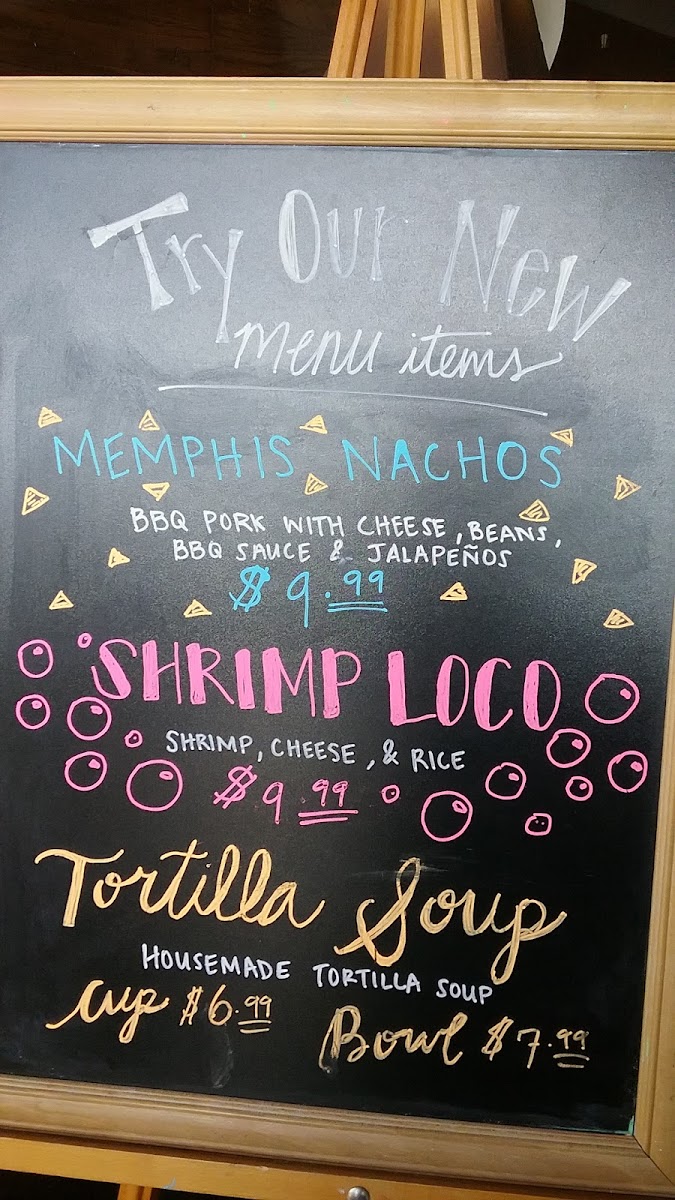 Try Our New
menu items
MEMPHIS NACHOS
BBQ PORK WITH CHEESE, BEANS,
BBQ SAUCE & JALAPEÑOS
$9.99
SHRIMP LOCO
SHRIMP, CHEESE, & RICE
$9.99
Tortilla Soup
HOUSEMADE TORTILLA SOUP
Cup $6.99
Bowl $7.99